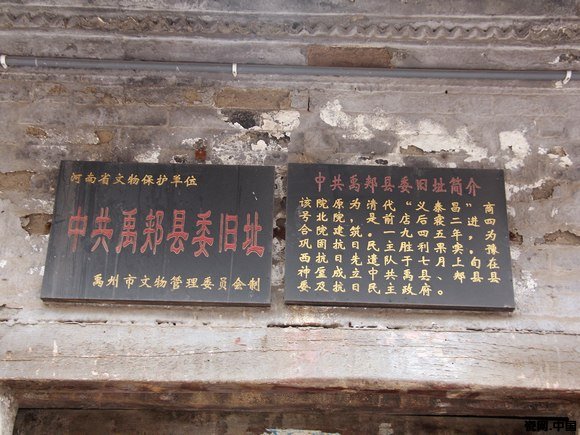 河南省文物保护单位
中共禹郏县委旧址
禹州市文物管理委员会制
中共禹郏县委旧址简介
该院原为清代“义泰昌”商
号北院,是前店后寝二进四
合院建筑。一九四五年,为
巩固抗日民主胜利果实,豫
西抗日先遣队于七月上旬在
神垕成立中共禹县、郏县县
委及抗日民主政府。
瓷网.中国